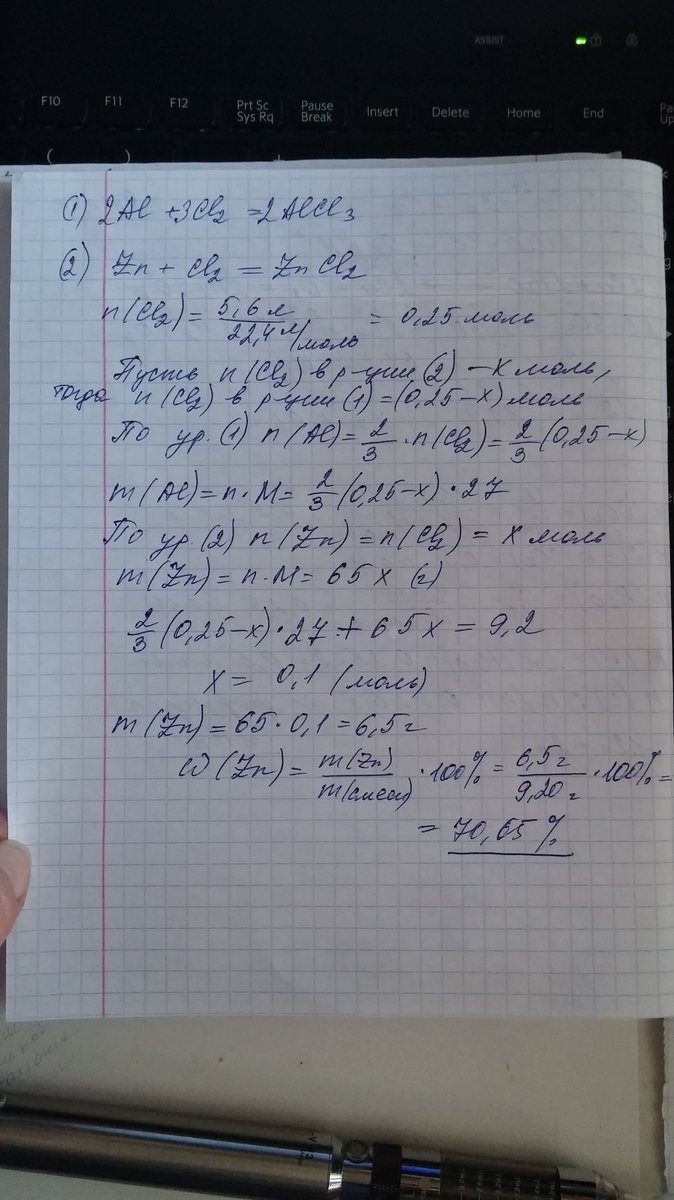 ASSIST
F10 F11 F12 Prt Sc Sys Rq Pause Break Insert Delete Home End
1) 2Al + 3Cl₂ = 2AlCl₃
(2) Zn + Cl₂ = ZnCl₂
n(Cl₂) = 5,6 л / 22,4 л/моль = 0,25 моль
Пусть n(Cl₂) в р-ции (2) – x моль,
тогда n(Cl₂) в р-ции (1) = (0,25 – x) моль
По ур. (1) n(Al) = 2/3 · n(Cl₂) = 2/3 (0,25 – x)
m(Al) = n · M = 2/3 (0,25 – x) · 27
По ур. (2) n(Zn) = n(Cl₂) = x моль
m(Zn) = n · M = 65 x (г)
2/3 (0,25 – x) · 27 + 65 x = 9,2
x = 0,1 (моль)
m(Zn) = 65 · 0,1 = 6,5 г
ω(Zn) = m(Zn) / m(смеси) · 100% = 6,5 г / 9,20 г · 100% =
= 70,65 %